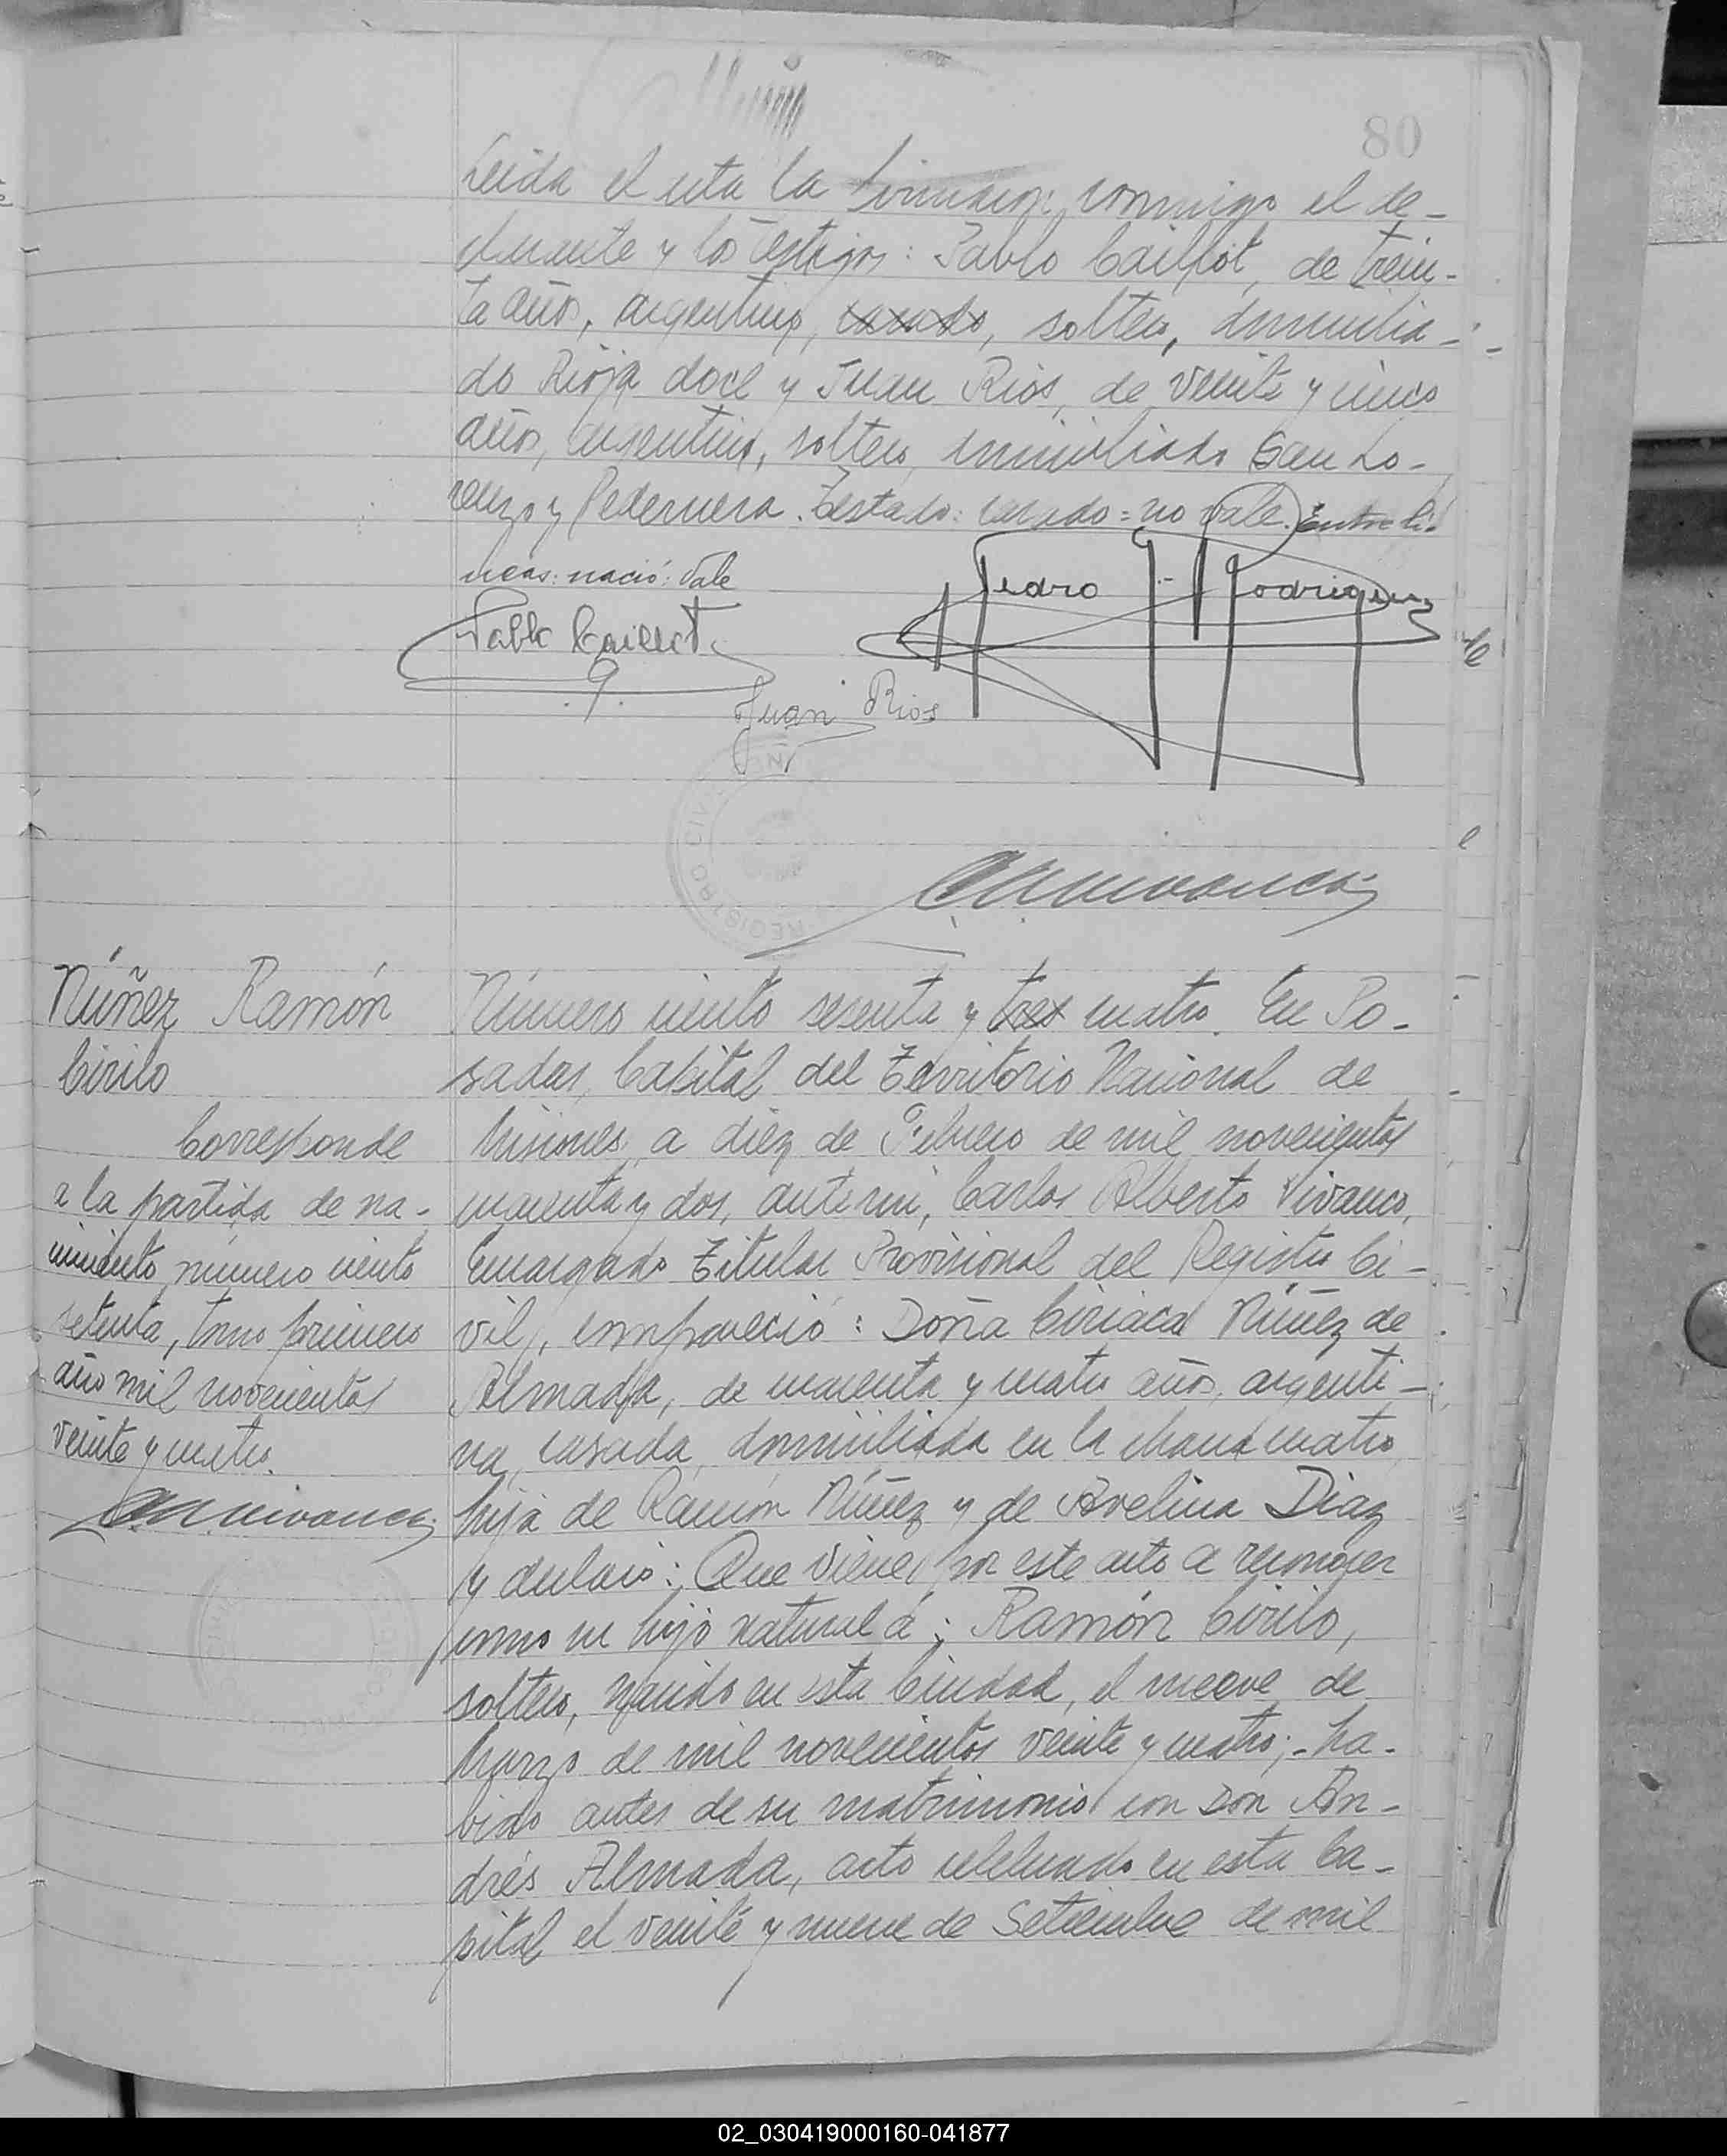 80
Leida el acta la firmaron conmigo el de-
clarante y los testigos: Pablo Caillot, de trein-
ta años, argentino, casado, soltero, domicilia-
do Rioja doce y Juan Rios, de veinte y cinco
años, argentino, soltero, domiciliado San Lo-
renzo y Pedernera. Testado: casado = no vale. Entre lí-
neas: nació: Vale
Pedro Rodriguez
Pablo Caillot
Juan Rios
REGISTRO CIVIL
Núñez Ramón
Cirilo
Corresponde
a la partida de na-
cimiento número ciento
setenta, tomo primero
año mil novecientos
veinte y cuatro.
Número ciento sesenta y tres cuatro. En Po-
sadas, Capital del Territorio Nacional de
Misiones, a diez de Febrero de mil novecientos
cuarenta y dos, ante mi, Carlos Alberto Vivanco,
Encargado Titular Provisional del Registro Ci-
vil, compareció: Doña Ciriaca Núñez de
Almada, de cuarenta y cuatro años, argenti-
na, casada, domiciliada en la chacra cuatro,
hija de Ramón Núñez y de Avelina Diaz
y declaró: Que viene por este acto a reconocer
como su hijo natural á: Ramón Cirilo,
soltero, nacido en esta Ciudad, el nueve de
Marzo de mil novecientos veinte y cuatro; - ha-
bido antes de su matrimonio con Don An-
drés Almada, acto celebrado en esta Ca-
pital el veinte y nueve de Setiembre de mil
02_030419000160-041877